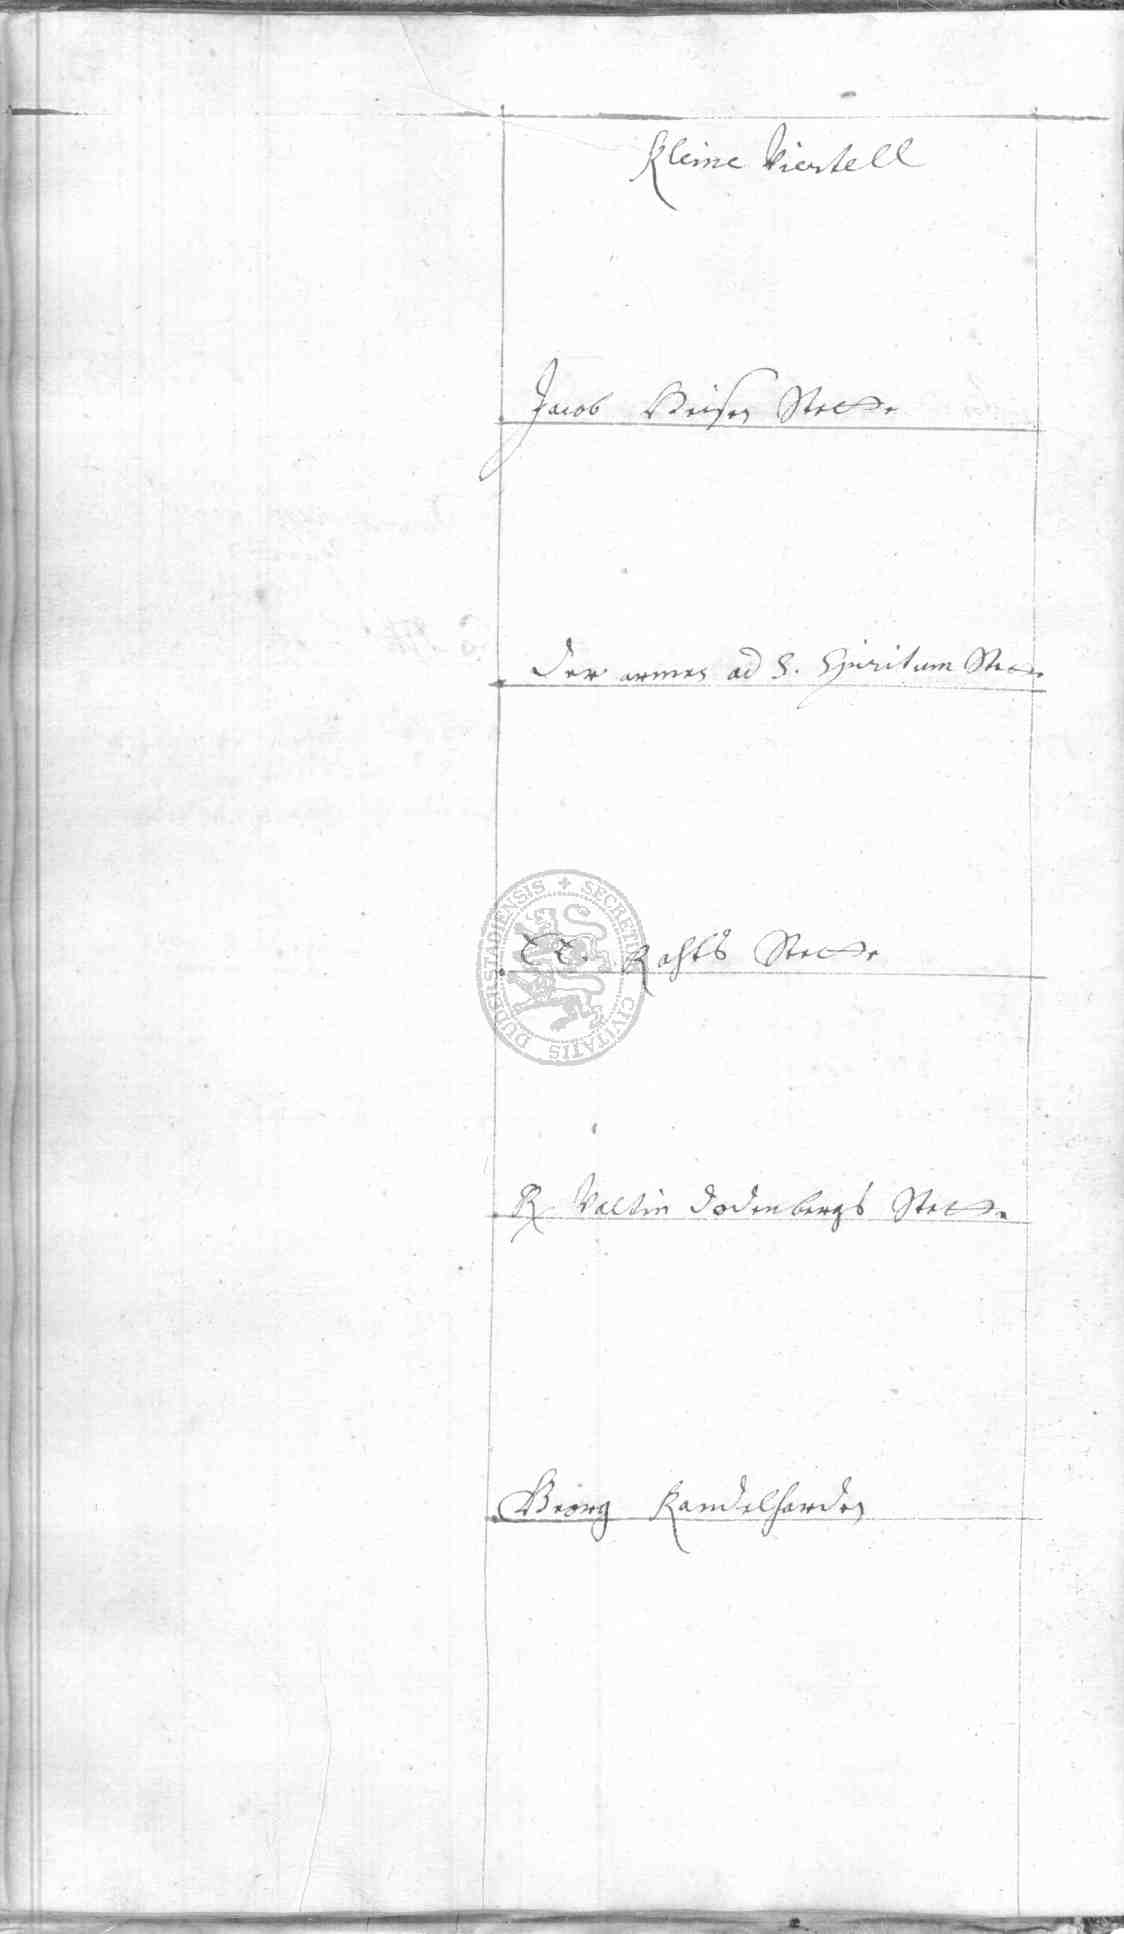 Kleine Viertell
Jacob Weisen Stette
Der armen ad S. Spiritum Stette
Rahts Stette
R Valtin Dodenbergs Stette
Georg Kandelharden
SECRETUM CIVITATIS DUDERSTADIENSIS